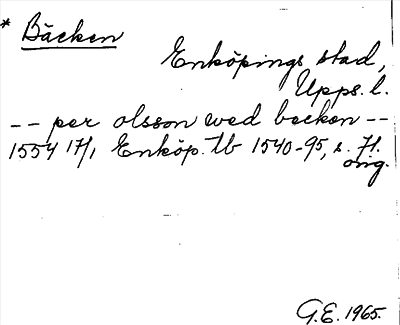 * Bäcken
Enköpings stad,
Upps. l.
-- per olsson wed becken --
1554 17/1 Enköp. tb 1540-95, s. 71.
orig.
G.E. 1965.